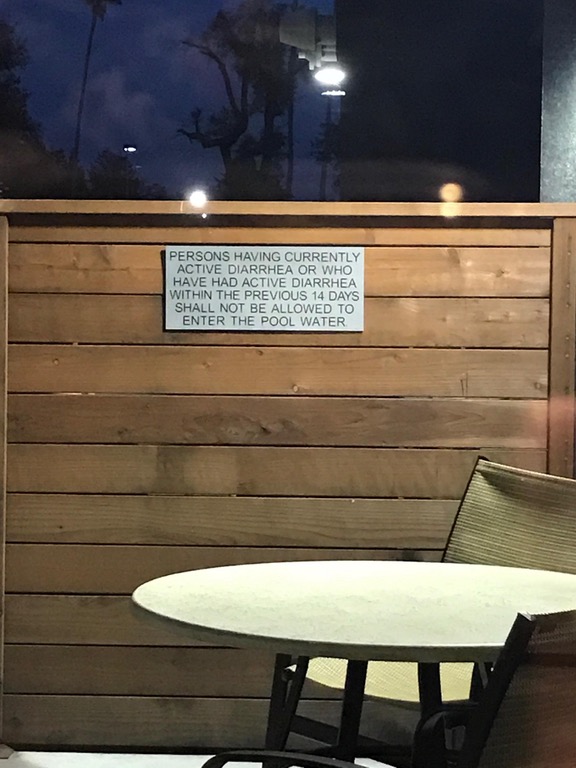 PERSONS HAVING CURRENTLY
ACTIVE DIARRHEA OR WHO
HAVE HAD ACTIVE DIARRHEA
WITHIN THE PREVIOUS 14 DAYS
SHALL NOT BE ALLOWED TO
ENTER THE POOL WATER.